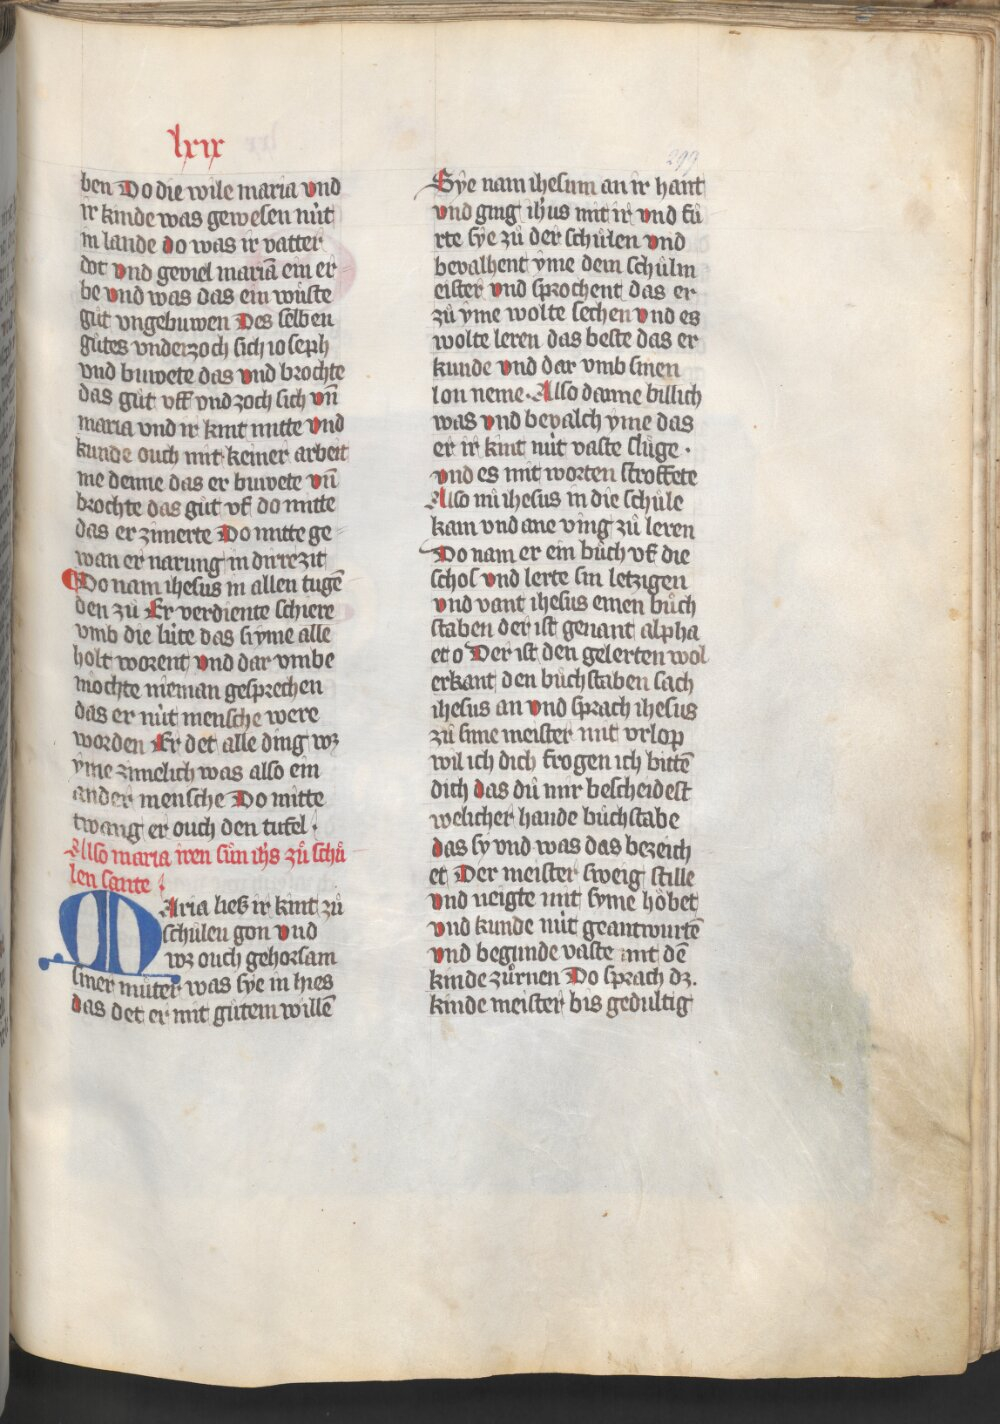 lxix
299
ben Do die wile maria vnd
ir kinde was gewesen nùt
in lande do was ir vatter
dot vnd geviel mariā ein er
be vnd was das ein wuͤste
guͦt vngebuwen Des selben
guͦtes vnderzoch sich ioseph
vnd buwete das vnd brochte
das guͦt vff vnd zoch sich vn̄
maria vnd ir kint mitte vnd
kunde ouch mit keiner arbeit
me denne das er buwete vn̄
brochte das guͦt vf do mitte
das er zimerte Do mitte ge
wan er narung in dirre zit
Do nam ihesus in allen tugē
den zuͦ Er verdiente schiere
vmb die lùte das sy yme alle
holt worent vnd dar vmbe
mochte nieman gesprechen
das er nùt mensche were
worden Er det alle ding wz
yme zimelich was also ein
ander mensche Do mitte
twang er ouch den tufel.
Also maria iren suͦn ihs zuͦ schuͦ
len sante
MAria lies ir kint zuͦ
schuͦlen gon vnd
wz ouch gehorsam
siner muͦter was sye in hies
das det er mit guͦtem willē
Sye nam ihesum an ir hant
vnd ging ih'us mit ir vnd fuͦ
rte sye zuͦ der schuͦlen vnd
bevalhent yme dem schuͦlm
eister vnd sprochent das er
zuͦ yme wolte sechen vnd es
wolte leren das beste das er
kunde vnd dar vmb sinen
lon neme. Also daz me billich
was vnd bevalch yme das
er ir kint nùt vaste sluͦge.
vnd es mit worten stroffete
Also nù ihesus in die schuͦle
kam vnd ane ving zuͦ leren
Do nam er ein buͦch vf die
schos vnd lerte sin letzigen
vnd vant ihesus einen buͦch
staben der ist genant alpha
et o Der ist den gelerten wol
erkant den buͦchstaben sach
ihesus an vnd sprach ihesus
zuͦ sime meister mit vrlop
wil ich dich frogen ich bittē
dich das dù mir bescheidest
welicher hande buͦchstabe
das sy vnd was das bezeich
et Der meister sweig stille
vnd neigte mit syme hoͤbet
vnd kunde nùt geantwurtē
vnd begunde vaste mit dē
kinde zuͦrnen Do sprach dz.
kinde meister bis gedultig